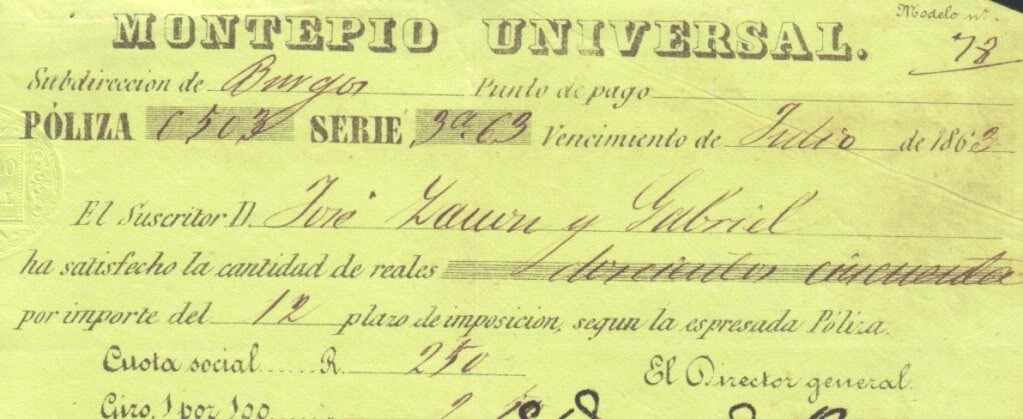 Modelo nº.
78
MONTEPIO UNIVERSAL.
Subdireccion de Burgos Punto de pago
PÓLIZA 6503 SERIE 3ª 63 Vencimiento de Julio de 1863
El Suscritor D. José y Gabriel
ha satisfecho la cantidad de reales doscientos cincuenta
por importe del 12 plazo de imposicion, segun la espresada Póliza.
Cuota social...... R. 250 El Director general.
Giro, 1 por 100